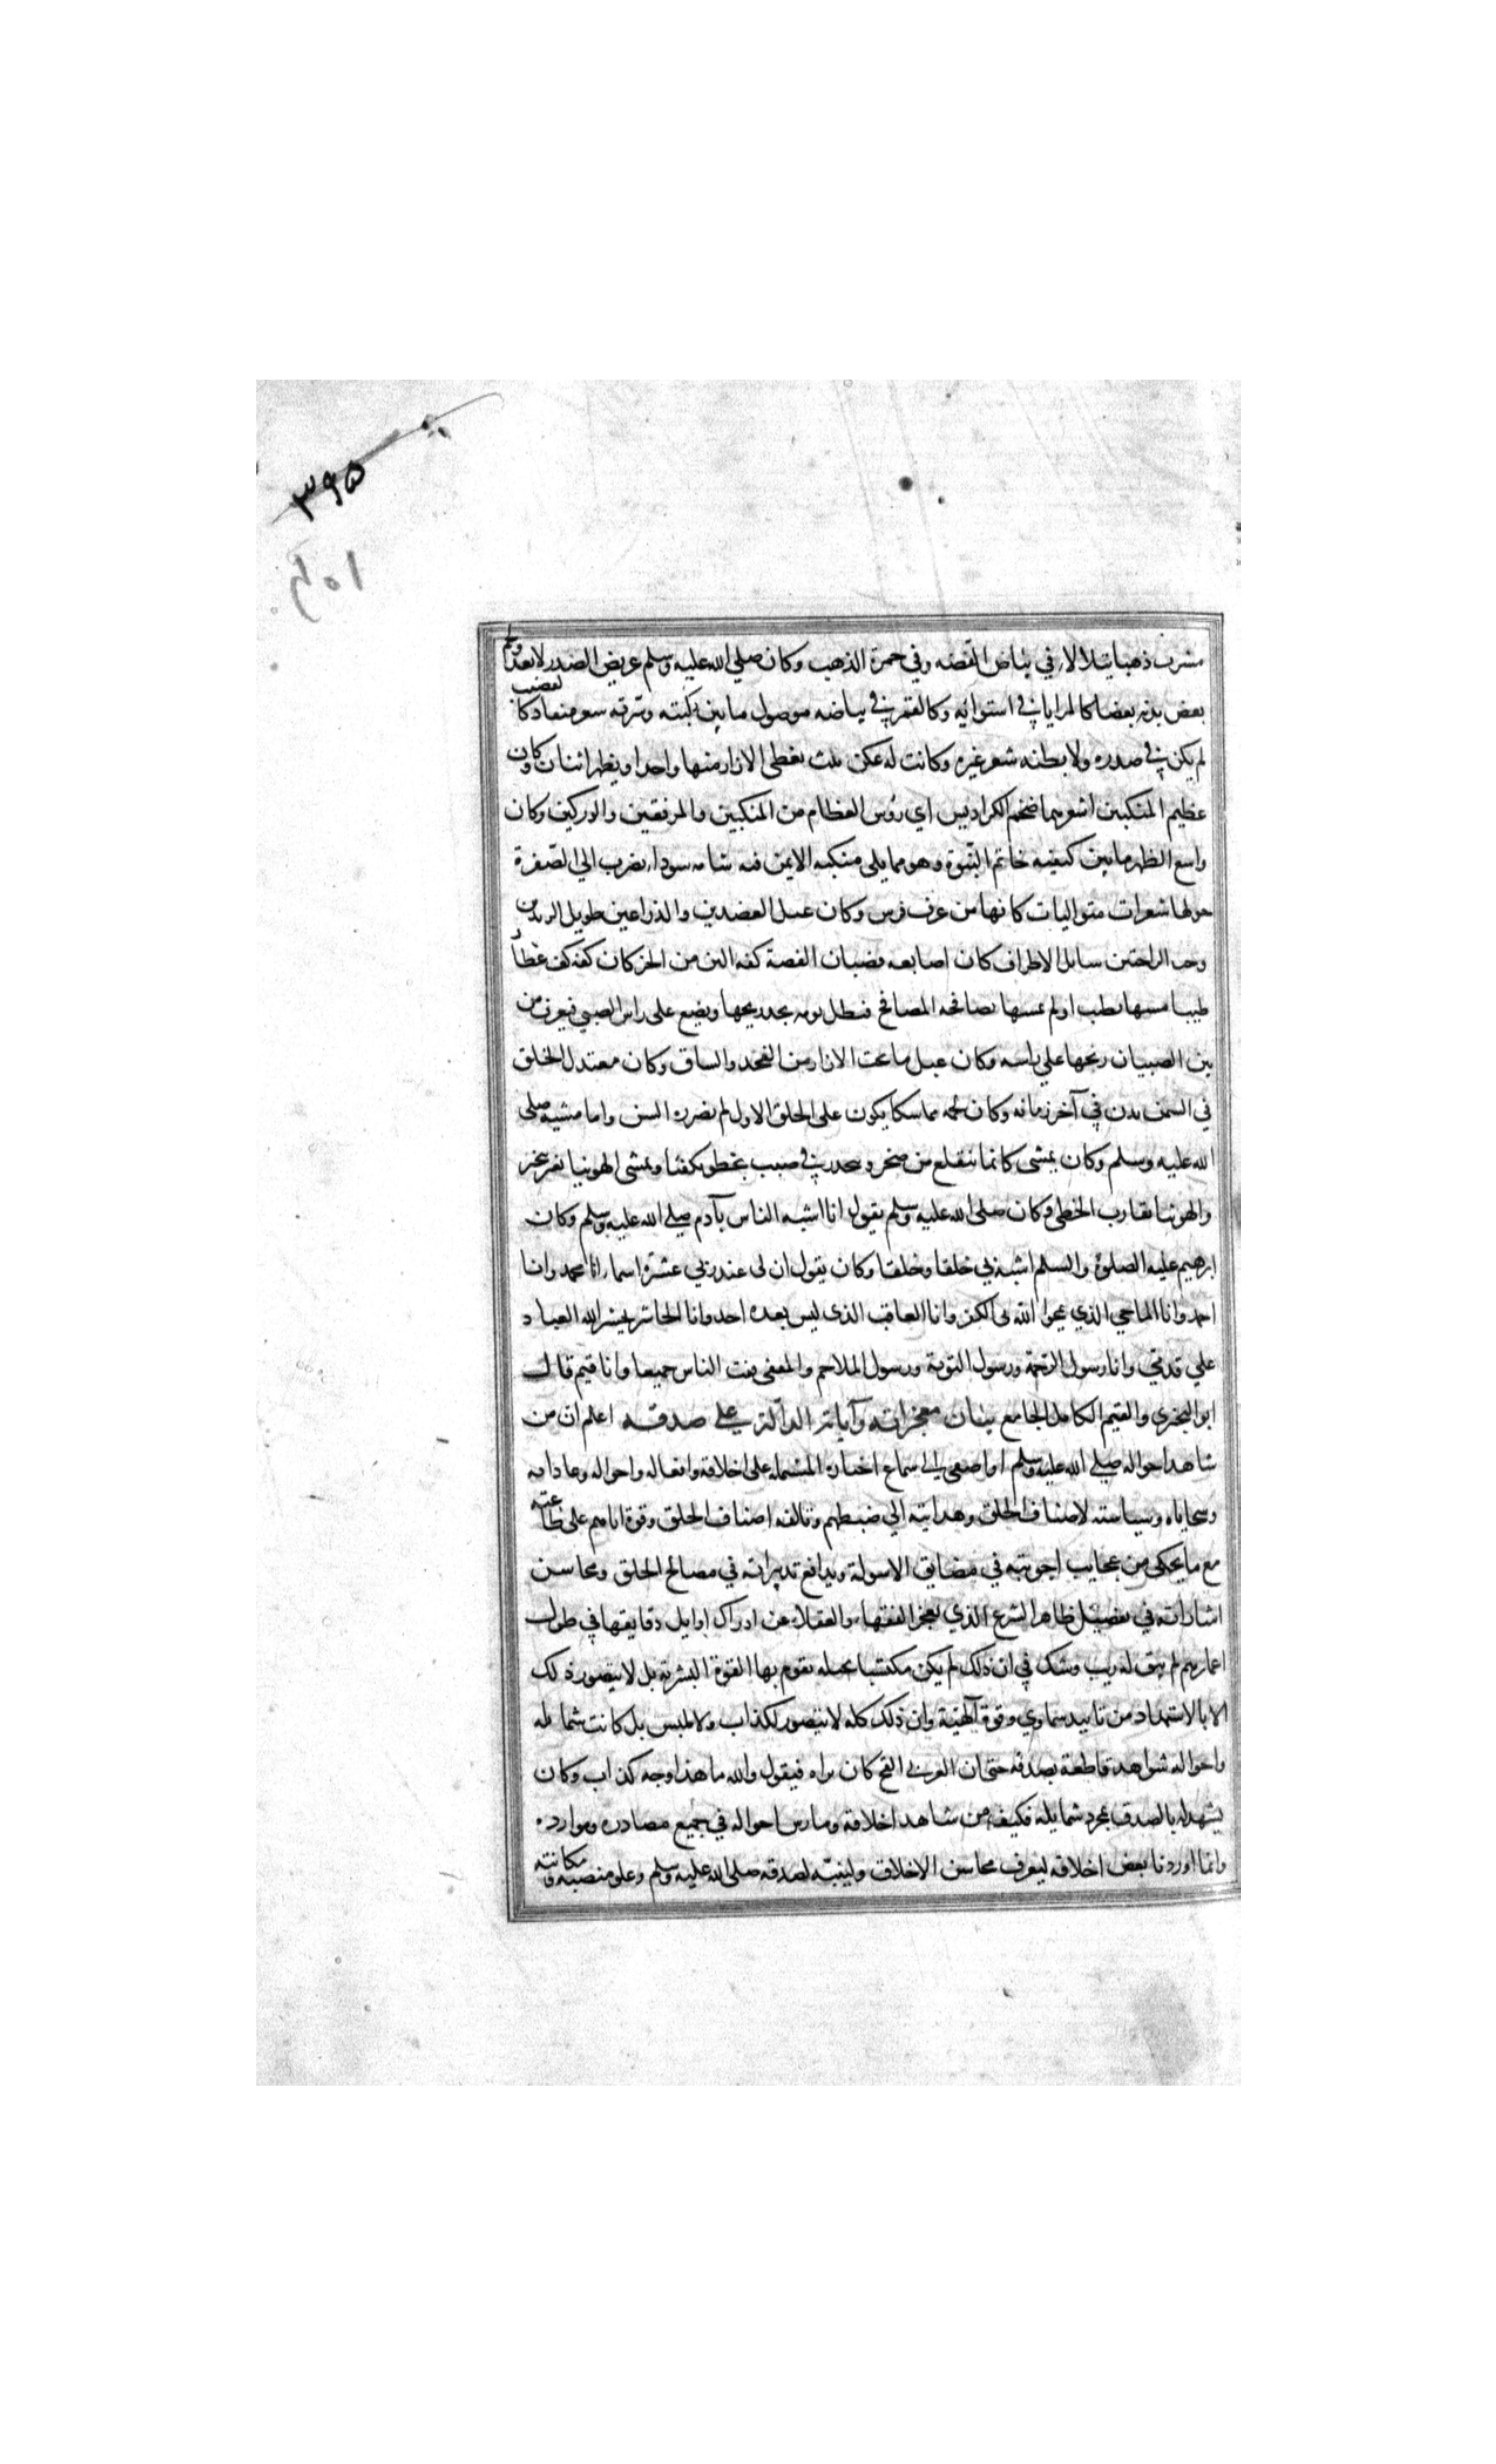 ٣٩٥
مشرب ذهبا يتلالا في بياض الفضه وفي حمرة الذهب وكان صلى الله عليه وسلم عريض الصدر لا يعد ولحم
بعض بدنه بعضا كالمرايا في استوائه وكالقمر في بياضه موصول ما بين لبته وسرته سعر منقاد كالقضيب
لم يكن في صدره ولا بطنه شعر غيره وكانت له عكن ثلث يغطى الازار منها واحدا ويظهر اثنان وكان
عظيم المنكبين اشعرهما ضخم الكراديس اي رؤس العظام من المنكبين والمرفقين والوركين وكان
واسع الظهر ما بين كتفيه خاتم النبوة وهو مما يلى منكبه الايمن فيه شامه سوداء يضرب الي الصفرة
حولها شعرات متواليات كانها من عرف فرس وكان عبل العضدين والذراعين طويل الزندين
رحب الراحتين سايل الاطراف كان اصابعه قضبان الفضة كفه الين من الخز كان كفه كف عطار
طيبا مسها بطيب او لم يمسها يصافحه المصافح فيظل يومه يجد ريحها ويضع على راس الصبي فيعرف من
بين الصبيان بريحها علي راسه وكان عبل ما تحت الازار من الفخد والساق وكان معتدل الخلق
في السمن بدن في آخر زمانه وكان لحمه مماسكا يكون على الخلق الاول لم يضرره السن واما مشيه صلى
الله عليه وسلم وكان يمشى كانما يتقلع من صخر وينحدر في صبب يخطو تكفئا ويمشى الهوينا بغير تبختر
والهوينا تقارب الخطى وكان صلى الله عليه وسلم يقول انا اشبه الناس بآدم صلى الله عليه وسلم وكان
ابرهيم عليه الصلوة والسلم اشبه بي خلقا وخلقا وكان يقول ان لى عند ربي عشرة اسماء انا محمد وانا
احمد وانا الماحي الذي يمحوا الله بى الكفر وانا العاقب الذى ليس بعده احد وانا الحاشر يحشر الله العباد
علي قدمي وانا رسول الرحمة ورسول التوبة ورسول الملاحم والمقفى قفيت الناس جميعا وانا قيم قال
ابو البختري والقيم الكامل الجامع بيان معجزاته وآياته الدالة على صدقه اعلم ان من
شاهد احواله صلى الله عليه وسلم او اصغى الى سماع اخباره المشتمله على اخلاقه وافعاله واحواله وعاداته
وسجاياه وسياسته لاصناف الخلق وهدايته الي ضبطهم وتالفه اصناف الخلق وقوة اياهم على طاعته
مع ما يحكى من عجايب اجوبته في مضايق الاسولة وبدايع تدبيراته في مصالح الخلق ومحاسن
اشاراته في تفصيل ظاهر الشرع الذي يعجز الفقهاء والعقلاء عن ادراك اوايل دقايقها في طول
اعمارهم لم يبق له ريب وشك في ان ذلك لم يكن مكتسبا بحيله يقوم بها القوة البشرية بل لا يتصور ذلك
الا بالاستمداد من تاييد سماوي وقوة آلهية وان ذلك كله لا يتصور لكذاب ولا ملبس بل كانت شمايله
واحواله شواهد قاطعة بصدقه حتى ان العربي القح كان يراه فيقول والله ما هذا وجه كذاب وكان
يشهد له بالصدق بمجرد شمايله فكيف من شاهد اخلاقه ومارس احواله في جميع مصادره وموارده
وانما اوردنا بعض اخلاقه ليعرف محاسن الاخلاق ولينبه لصدقه صلى الله عليه وسلم وعلو منصبه ومكانته